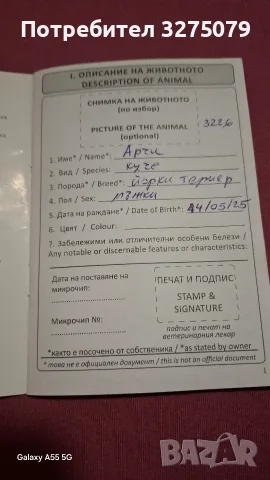 Потребител 3275079
I. ОПИСАНИЕ НА ЖИВОТНОТО
DESCRIPTION OF ANIMAL
СНИМКА НА ЖИВОТНОТО
(по избор)
PICTURE OF THE ANIMAL
(optional)
322/6
1. Име* / Name*: Арчи
2. Вид / Species: куче
3. Порода* / Breed*: йорки териер
4. Пол / Sex: мъжки
5. Дата на раждане* / Date of Birth*: 14/05/25
6. Цвят / Colour:
7. Забележими или отличителни особени белези /
Any notable or discernable features or characteristics:
Дата на поставяне на
микрочип:
Микрочип №:
ПЕЧАТ И ПОДПИС
STAMP &
SIGNATURE
подпис и печат на
ветеринарния лекар
*както е посочено от собственика / *as stated by owner
* това не е официален документ / this is not an official document
1
Galaxy A55 5G
BAZAR